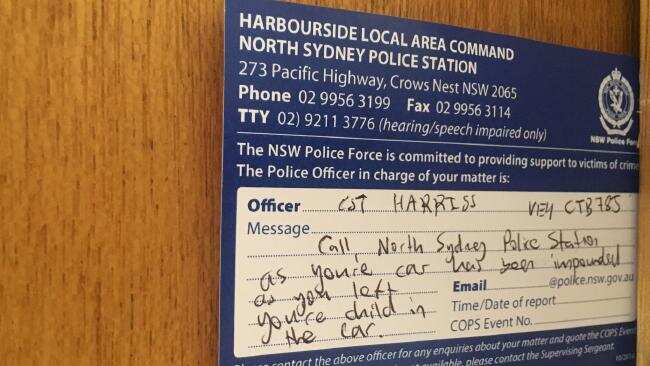 HARBOURSIDE LOCAL AREA COMMAND
NORTH SYDNEY POLICE STATION
273 Pacific Highway, Crows Nest NSW 2065
Phone 02 9956 3199 Fax 02 9956 3114
TTY 02) 9211 3776 (hearing/speech impaired only)
NSW Police Force
The NSW Police Force is committed to providing support to victims of crime
The Police Officer in charge of your matter is:
Officer CST HARRISS VEH CTB78S
Message
Call North Sydney Police Station
as you're car has been impounded
as you left
you're child in
the car.
Email @police.nsw.gov.au
Time/Date of report
COPS Event No.
Please contact the above officer for any enquiries about your matter and quote the COPS Event
please contact the Supervising Sergeant.